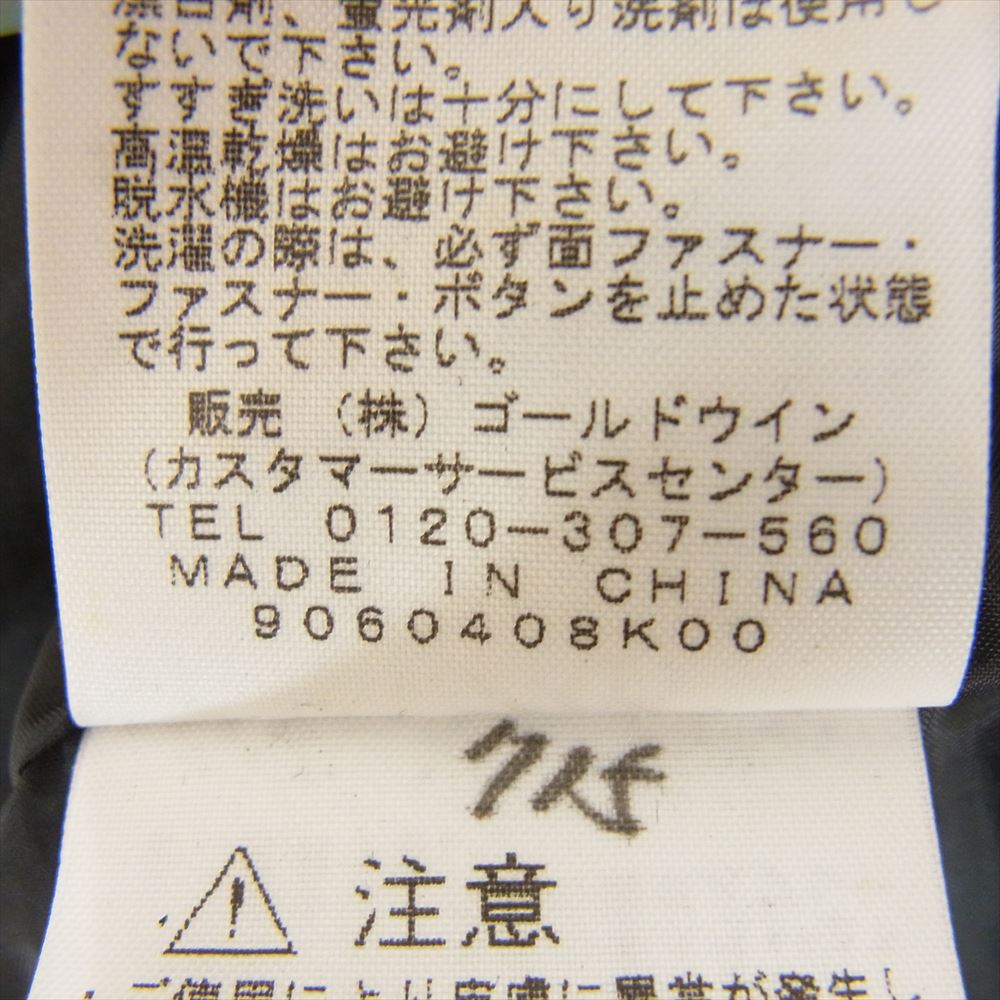 漂白剤、蛍光剤入り洗剤は使用し
ないで下さい。
すすぎ洗いは十分にして下さい。
高温乾燥はお避け下さい。
脱水機はお避け下さい。
洗濯の際は、必ず面ファスナー・
ファスナー・ボタンを止めた状態
で行って下さい。
販売 (株) ゴールドウイン
(カスタマーサービスセンター)
TEL 0120-307-560
MADE IN CHINA
9060408K00
注意
・ご使用により皮膚に異常が発生し